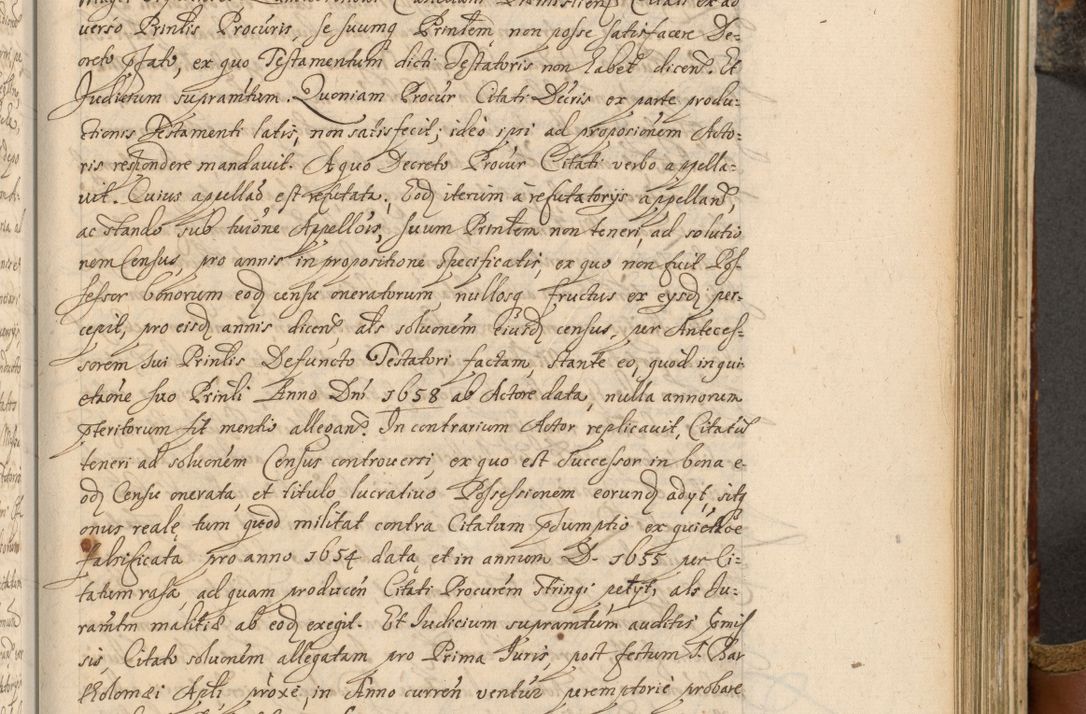 verso Prinlis Procuris, se suumq Printem non posse satisfacere De=
creto pfato, ex quo Testamentum dicti Testatoris non habet dicen. Et
Judicium supramtum. Quoniam Procur Citati Decris ex parte produ=
ctionis Testamenti latis, non satisfecit; ideo ipsi ad proposionem Acto=
ris respondere mandavit. A quo Decreto Procur Citati verbo appella=
vit. Cuius appellao est refutata. Eod iterum a refutatorijs appellan,
ac stando sub tuione Appellois, suum Printem non teneri ad solutio
nem Census, pro annis in propositione specificatis, ex quo non fuit Pos=
sessor bonorum eod censu oneratorum, nullosq fructus ex eysd per=
cepit, pro eisd annis dicen als soluonem eiusd census, per Anteces=
sorem sui Prinlis Defuncto Testatori factam, stante eo, quod in qui=
etaone suo Prinli Anno Dni 1658 ab Actore data, nulla annorum
pteritorum fit mentio allegan. In contrarium Actor replicavit, Citatu
teneri ad soluonem Census controversi, ex quo est Successor in bona e=
od Censu onerata, et titulo lucrativo Possessionem eorund adyt, sitq
onus reale, tum quod militat contra Citatum psumptio ex quietaoe
falsificata pro anno 1654 data, et in annum D. 1655 per Ci=
tatum rasa, ad quam producen Citati Procurem stringi petyt, als Ju=
ramtm malitiæ ab eod exegit. Et Judicium supramtum auditis pmis
sis Citato soluonem allegatam pro Prima Juris, post festum S. Bar
tholomæi Apli proxe, in Anno curren ventur peremptorie probare